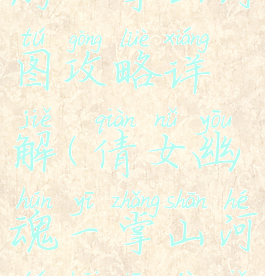 tú gōng lüè xiáng
图攻略详
jiě qiàn nǚ yōu
解(倩女幽
hún yī zhǎng shān hé
魂一掌山河